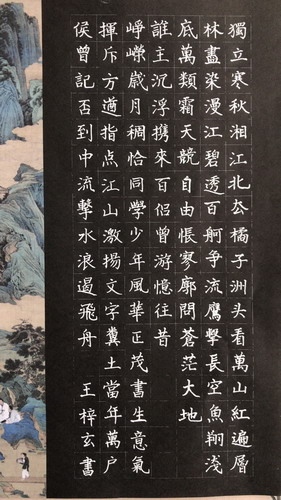 獨立寒秋湘江北厺橘子洲頭看萬山紅遍層
林盡染漫江碧透百舸争流鷹擊長空魚翔淺
底萬類霜天競自由悵寥廓問蒼茫大地
誰主沉浮携來百侣曾游憶往昔
崢嶸歲月稠恰同學少年風華正茂書生意氣
揮斥方遒指点江山激揚文字糞土當年萬户
侯曾記否到中流擊水浪遏飛舟 王梓玄書